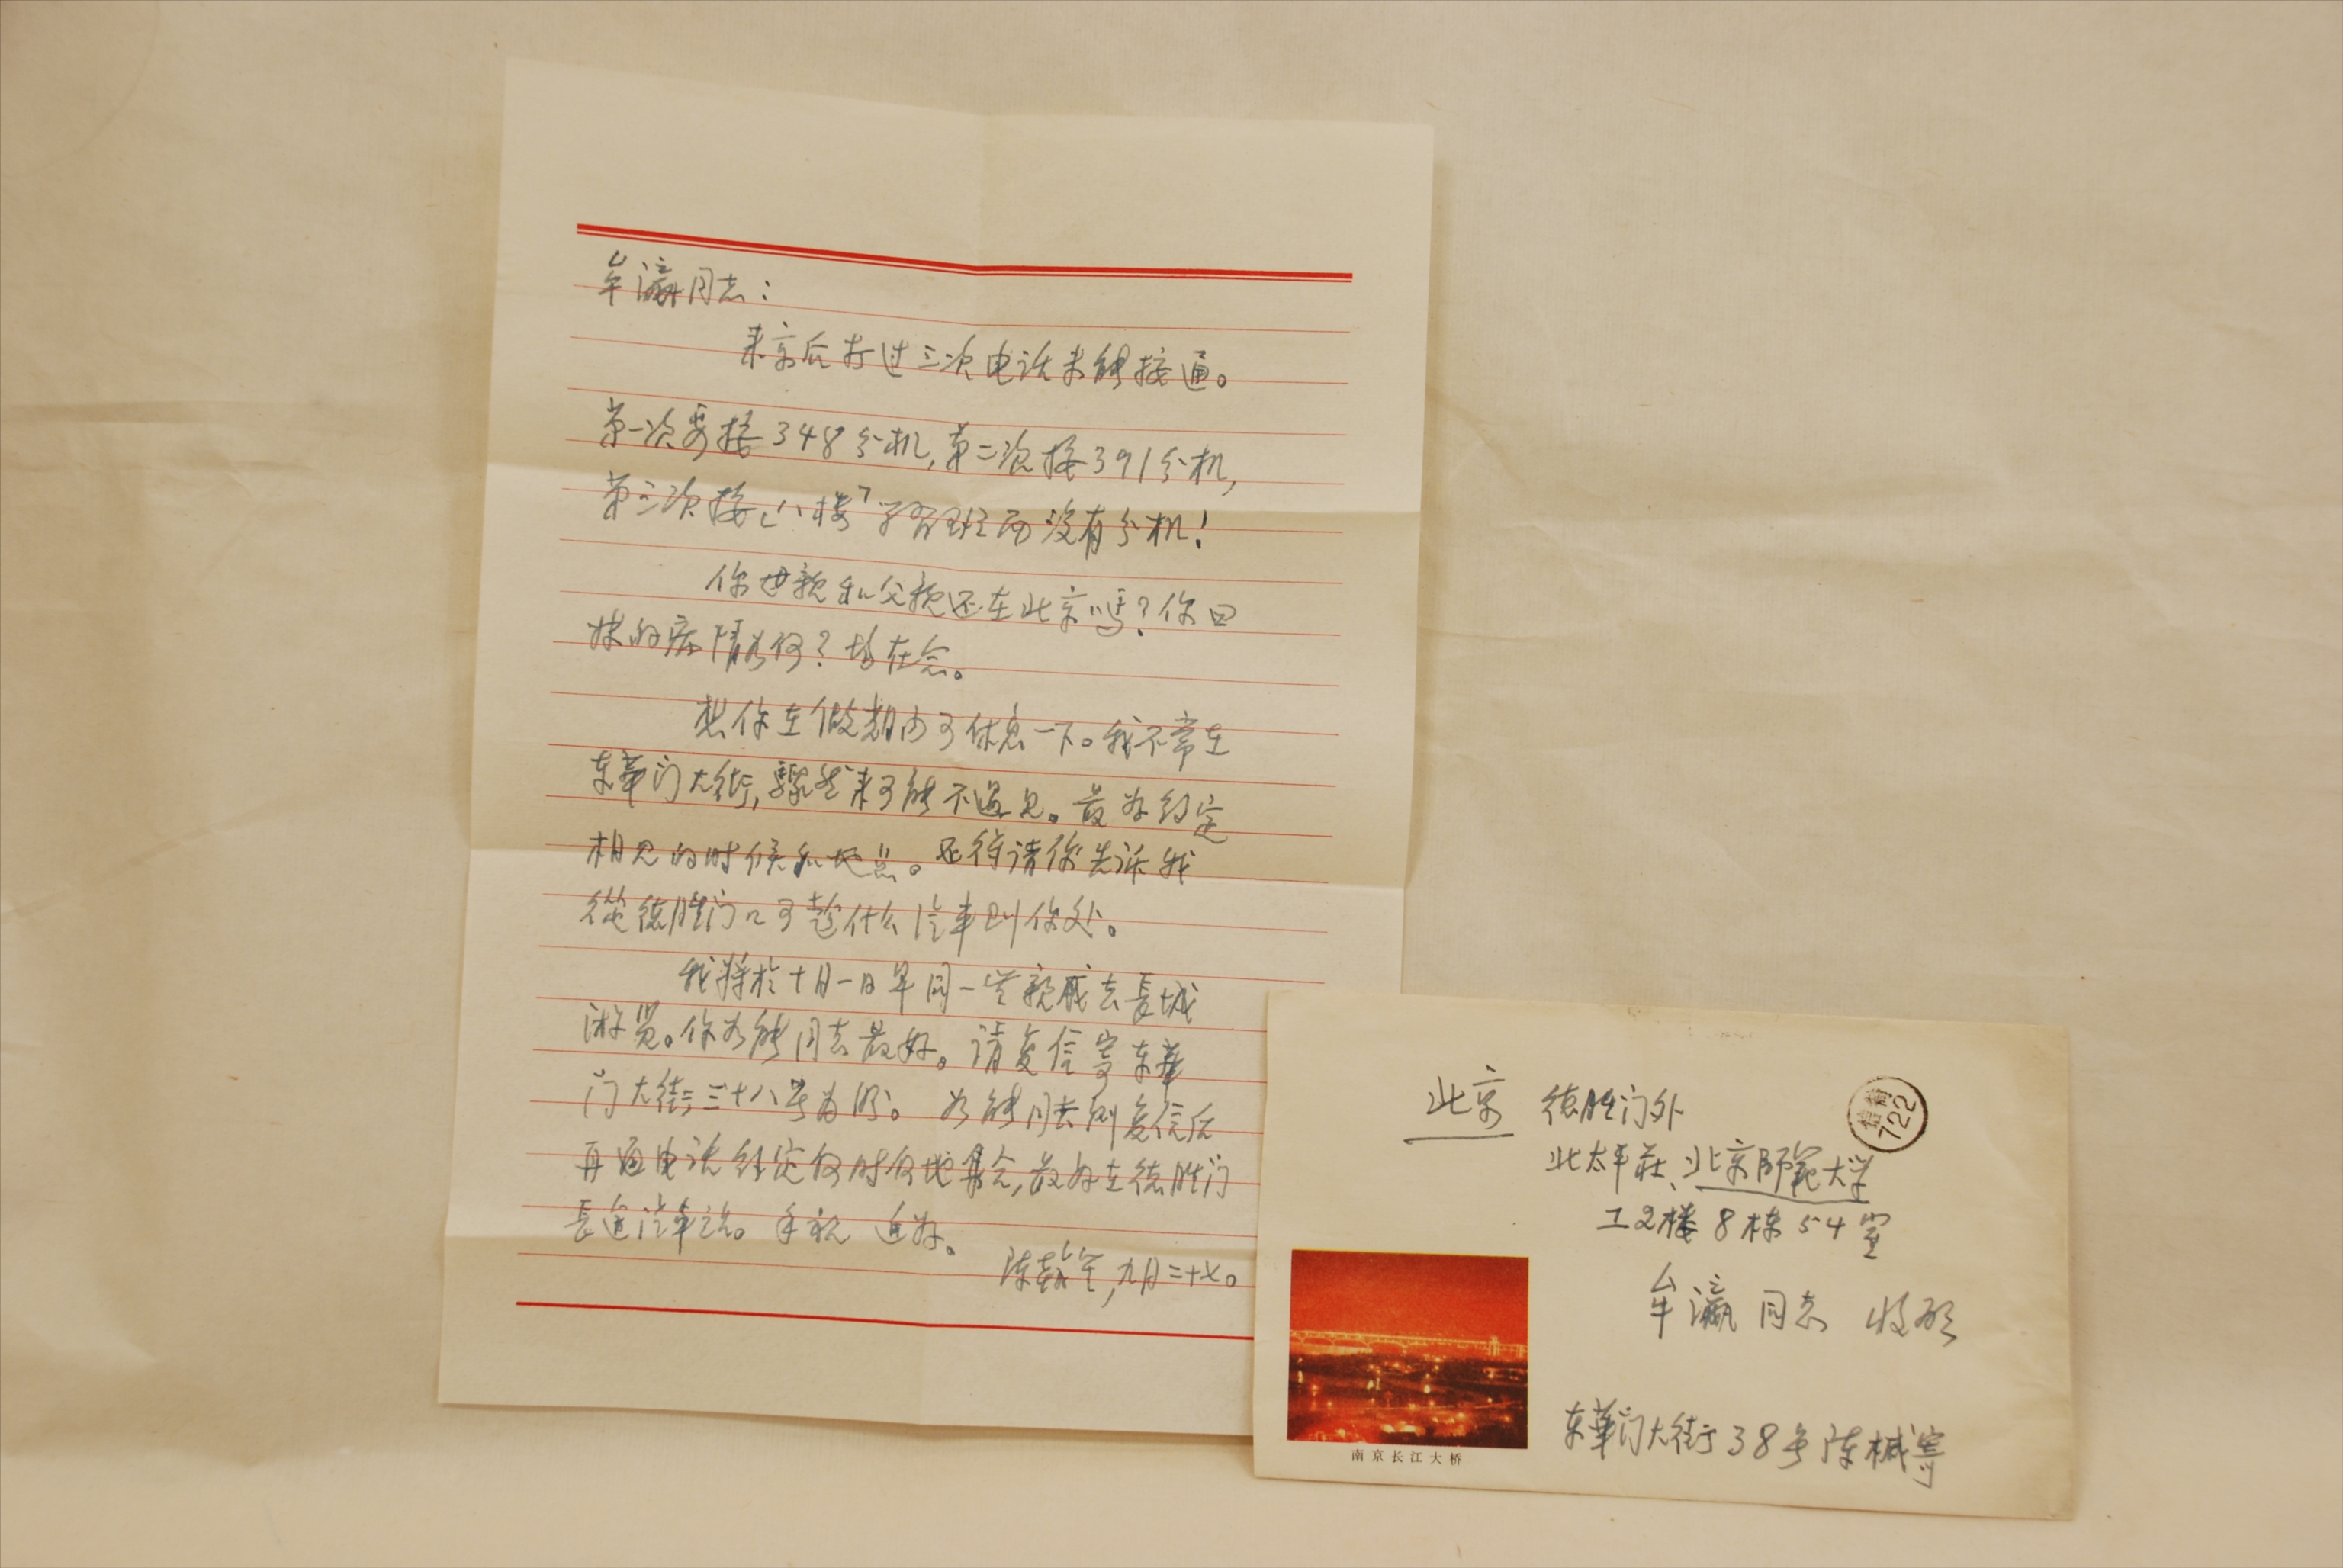 牟瀛同志：
来京后打过三次电话未能接通。
第一次要接348分机，第二次接391分机，
第三次接八楼学习班而没有分机！
你母亲和父亲还在北京吗？你四
妹的病情如何？均在念。
想你在假期内可休息一下。我不常在
东華门大街，骤然来可能不遇见。最好约定
相见的时候和地点。还得请你告诉我
從德胜门口可趁什么汽车到你处。
我将於十月一日早同一些亲戚去長城
游览。你如能同去最好。请复信寄东華
门大街三十八号为盼。如能同去则复信后
再通电话约定何时何地集合，最好在德胜门
長途汽車站。手祝 近好。
陈，九月二十七。
北京 德胜门外
北太平莊、北京師範大学
工2楼8栋54室
牟瀛同志 收启
东華门大街38号陈椷寄
722
南京长江大桥